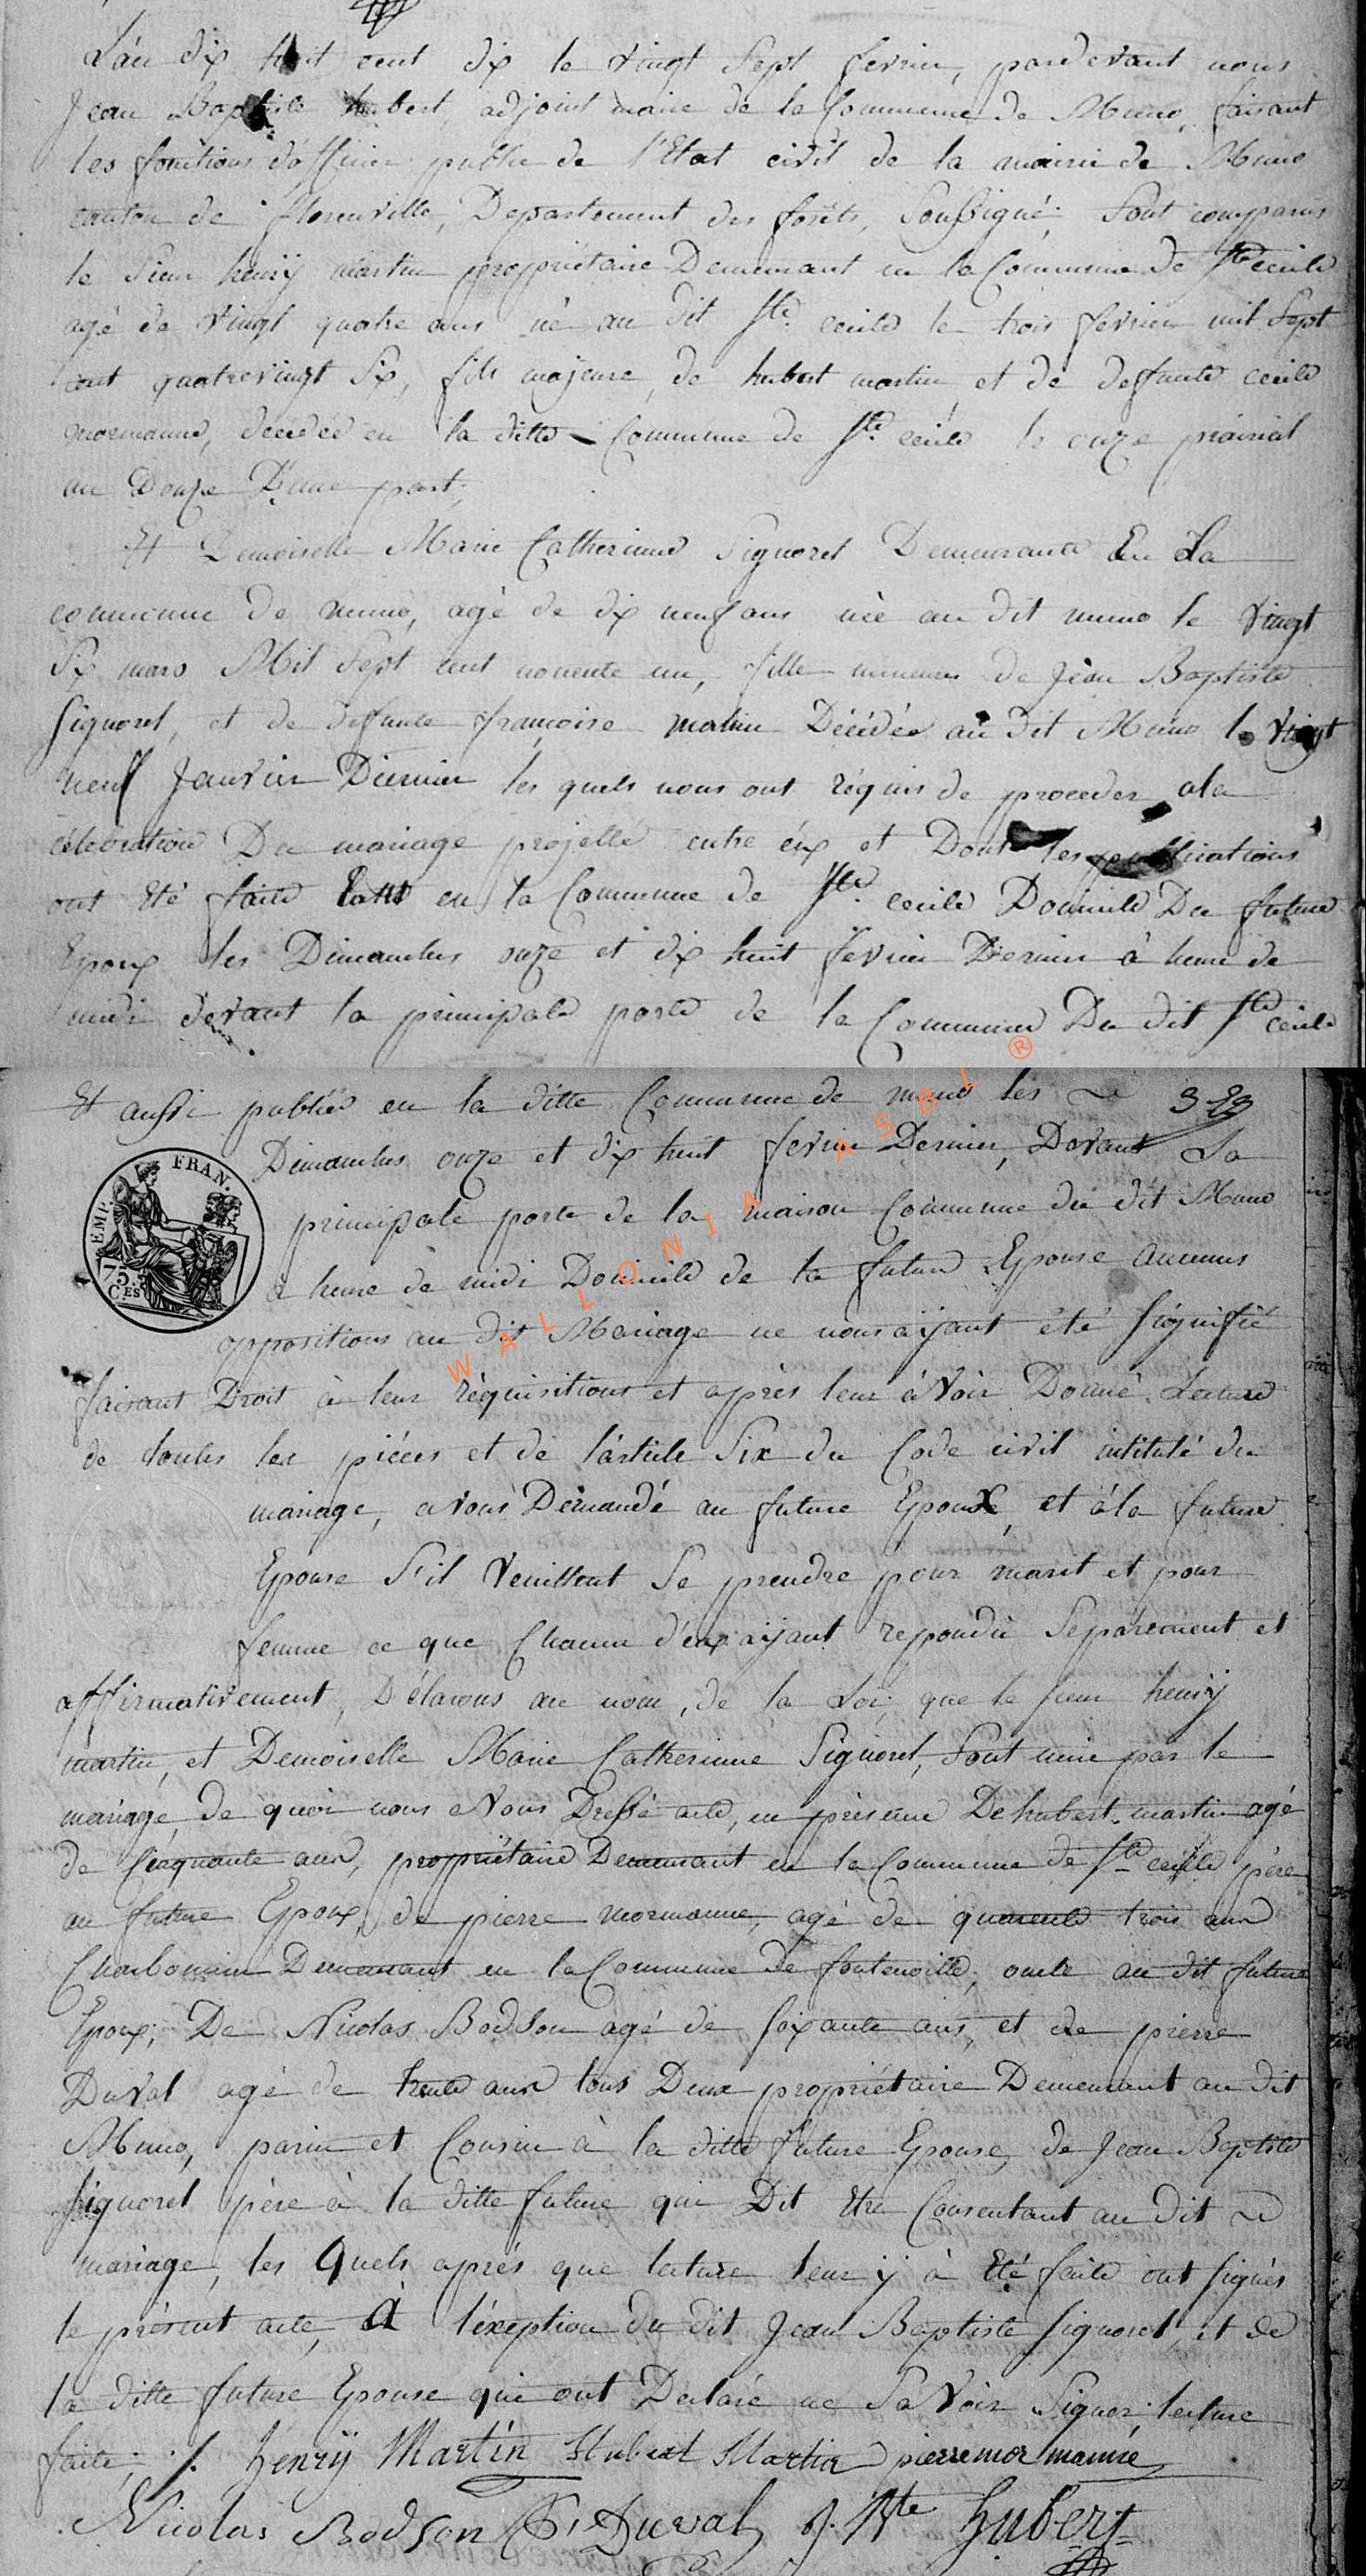 L'an dix huit cent dix le vingt sept fevrier, pardevant nous
Jean Baptiste hubert, adjoint maire de la Commune de Muno, faisant
les fonctions d'officier public de l'Etat civil de la mairie de Muno
canton de florenville, Departement des forêts, Soussigné, Sont comparus
le Sieur henrÿ martin propriétaire Demeurant en la Commune de Ste cecile
agé de vingt quatre ans né au dit Ste cecile le trois fevrier mil Sept
cent quatrevingt Six, fils majeure, de hubert martin, et de deffunte cecile
mormanne, decedée en la ditte Commune de Ste cecile le onze prairial
an Douze D'une part;
Et Demoiselle Marie Catherinne Signorel Demeurante En La
commune de muno, agé de dix neuf ans née au dit muno le vingt
Six mars Mil Sept cent nonente un, fille mineure de Jean Baptiste
Signorel, et de deffunte françoise Décédée au dit Muno le vingt
neuf Janvier Diernier les quels nous ont réquis de proceder ala
célébration Du mariage projetté entre éux et Dont les publications
ont Eté faite en la Commune de Ste cecile Domicile Du future
Epoux les Dimanches onze et dix huit fevrier Diernier à heure de
midi devant la principale porte de la Commune Du dit Ste cecile
Et aussi publiés en la ditte Commune de muno les 323
Dimanches onze et dix huit fevrier Dernier, Devant La
principale porte de la maison Commune du dit Muno
à heure de midi Domicile de la future Epouse aucunes
oppositions au dit Mariage ne nous aÿant été Signifié
faisant Droit à leur réquisitions et après leur àvoir Donné Lecture
de toutes les piéces et de l'article Six du Code civil intitulé du
mariage, avons Demandé au future Epoux, et àla future
Epouse S'il veuillent Se prendre pour marit et pour
femme ce que Chacun d'eux aÿant repondu Séparement et
affirmativement, Déclarons au nom, de la Loi, que le Sieur henrÿ
martin, et Demoiselle Marie Catherinne Signorel, Sont unie par le
mariage, de quoi nous avons Dressé acte, en présence De hubert martin agé
de Cinquante ans, propriétaire Demeurant en la Commune de Ste cecile père
au future Epoux, de pierre mormanne, agé de quarente trois ans
Charbonnier Demeurant en la Commune de fontenoille, oncle au dit future
Epoux; De Nicolas Bodson agé de soixante ans, et de pierre
Duval agé de trente ans tous Deux propriétaire Demeurant au dit
Muno, parin et Cousin à la ditte future Epouse, de Jean Baptiste
Signorel père à la ditte future qui Dit Etre Consentant au dit
mariage, les Quels après que lecture leur ÿ à Eté faite ont signés
le présent acte, A l'éxeption du dit Jean Baptiste signorel, et de
la ditte future Epouse qui ont Declaré ne Savoir Signer, lecture
faite; ./. henrÿ Martin Hubert Martin pierre mormanne
Nicolas Bodson P, Duval J. Bte hubert
EMP. FRAN.
75 CES
WALLONIA ASBL ®